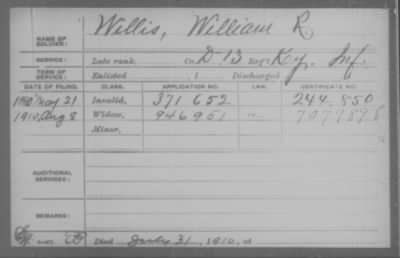 NAME OF SOLDIER: Willis, William R
SERVICE: Late rank, Co. D 13 Reg't Ky. Inf.
TERM OF SERVICE: Enlisted , 1 Discharged
DATE OF FILING. CLASS. APPLICATION NO. LAW. CERTIFICATE NO.
1880 May 21 Invalid, 371 652 244.850
1910, Aug 8 Widow, 946951 707989
Minor,
ADDITIONAL SERVICES:
REMARKS:
Died July 31, 1910, at